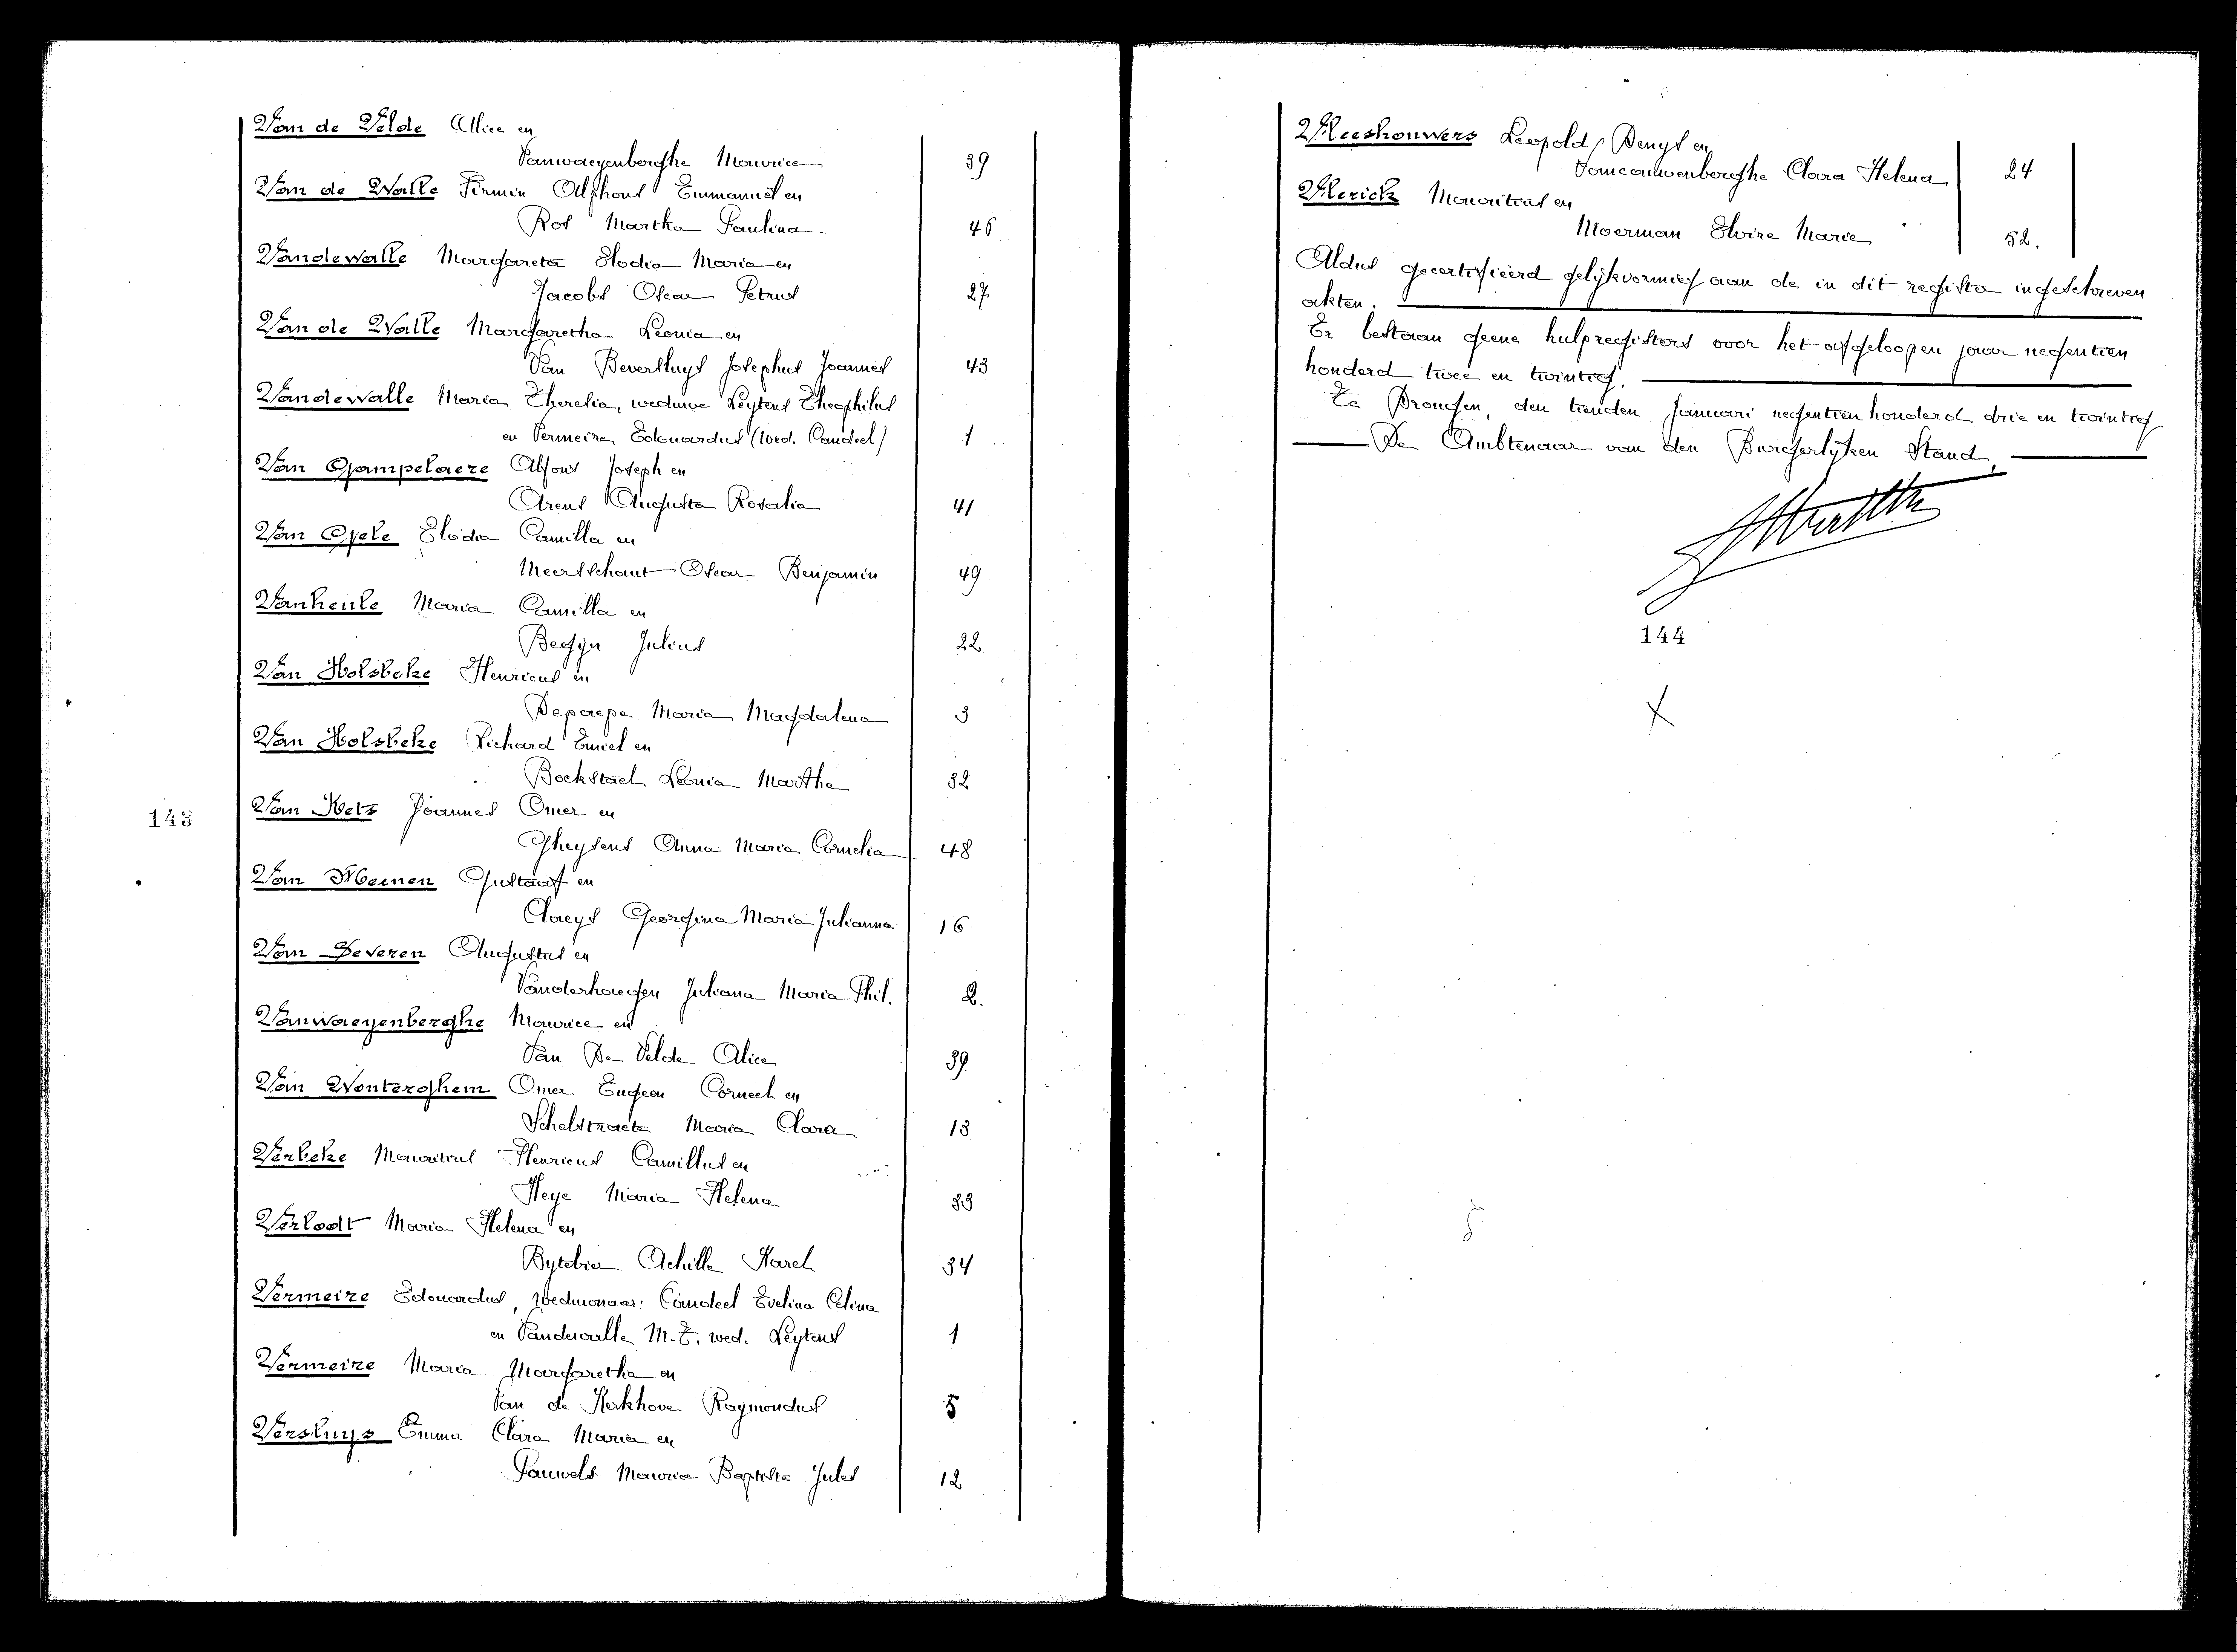 Van de Velde Alice en
Vanwaeyenberghe Maurice 39
Van de Walle Firmin Alphons Emmanuël en
Ros Martha Paulina 46
Vandewalle Margareta Elodia Maria en
Jacobs Oscar Petrus 27
Van de Walle Margaretha Leonia en
Van Beversluys Josephus Joannes 43
Vandewalle Maria Theresia, weduwe Leytens Theophilus
en Vermeire Edouardus (wed. Candeel) 1
Van Gampelaere Alfons Joseph en
Arens Augusta Rosalia 41
Van Gele Elodia Camilla en
Meersschaut Oscar Benjamin 49
Vanheule Maria Camilla en
Begyn Julius 22
Van Holsbeke Henricus en
Depaepe Maria Magdalena 3
Van Holsbeke Richard Emiel en
Bockstael Leonia Martha 32
Van Kets Joannes Omer en
Gheysens Anna Maria Cornelia 48
143
Van Meenen Gustaaf en
Claeys Georgina Maria Julianna 16
Van Peveren Augustus en
Vanderhaegen Juliana Maria Phil. 2.
Vanwaeyenberghe Maurice en
Van De Velde Alice 39
Van Wonterghem Omer Eugeen Corneel en
Schelstraete Maria Clara 13
Verbeke Mauritius Henricus Camillus en
Heye Maria Helena 33
Verlodt Maria Helena en
Bytebier Achille Karel 34
Vermeire Edouardus, weduwnaar: Candeel Evelina Celina
en Vandewalle M. T. wed. Leytens 1
Vermeire Maria Margaretha en
Van de Kerkhove Raymondus 5
Versluys Emma Clara Maria en
Pauwels Maurice Baptiste Jules 12
Vleeshouwers Leopold Denys en
Vancauwenberghe Clara Helena 24
Vlerick Mauritius en
Moerman Elvire Marie 52.
Aldus gecertifieerd gelijkvormig aan de in dit register ingeschreven
akten.
Er bestaan geene hulpregisters voor het afgeloopen jaar negentien
honderd twee en twintig.
Te Drongen, den tienden Januari negentien honderd drie en twintig
De Ambtenaar van den Burgerlijken Stand,
144
X